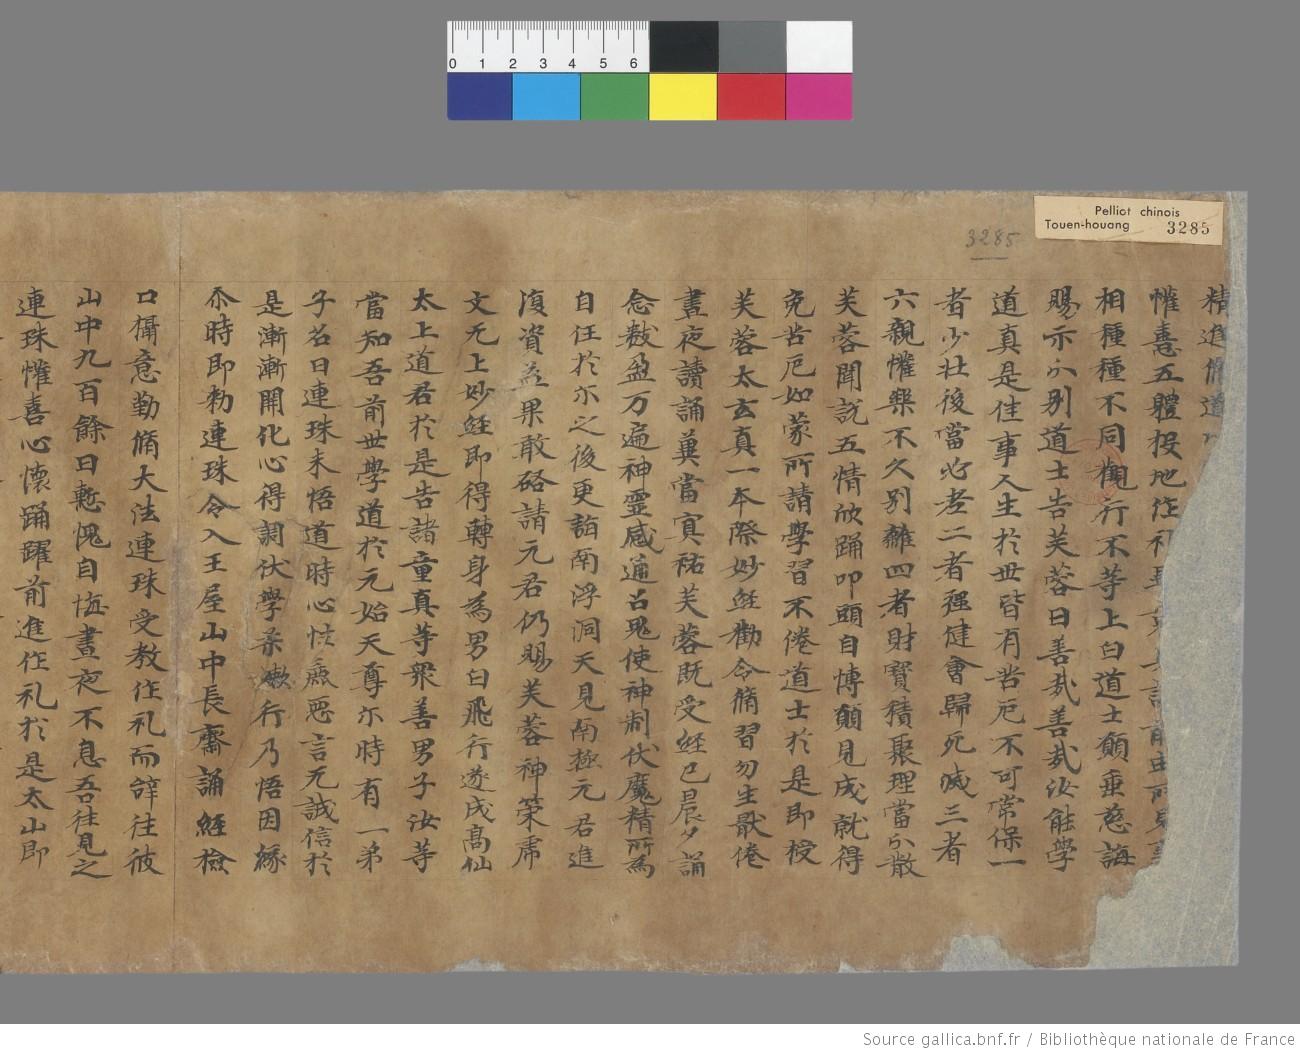 0 1 2 3 4 5 6
Pelliot chinois
Touen-houang 3285
3285
精進脩道
懽憙五體投地作礼
相種種不同觀行不等上白道士願垂慈誨
賜示分別道士告芙蓉曰善哉善哉汝能學
道真是佳事人生於世皆有苦厄不可常保一
者少壯後當必老二者强健會歸死滅三者
六親懽樂不久別離四者財寶積聚理當分散
芙蓉聞說五情欣踊叩頭自愽願見成就得
免苦厄如蒙所請學習不倦道士於是即授
芙蓉太玄真一本際妙經勸令脩習勿生猒倦
晝夜讀誦冀當冥祐芙蓉既受經已晨夕誦
念數盈万遍神靈感通召鬼使神制伏魔精所為
自任於尒之後更詣南浮洞天見南極元君進
復資益果敢啓請元君仍賜芙蓉神策虎
文无上妙經即得轉身為男白日飛行遂成高仙
太上道君於是告諸童真等衆善男子汝等
當知吾前世學道於元始天尊尒時有一弟
子名曰連珠未悟道時心性麁惡言无誠信於
是漸漸開化心得調伏學柔嫰行乃悟因緣
尒時即勑連珠令入王屋山中長齋誦經檢
口攝意勤脩大法連珠受教作礼而辞往彼
山中九百餘日慙愧自悔晝夜不息吾往見之
連珠懽喜心懷踊躍前進作礼於是太山即
Source gallica.bnf.fr / Bibliothèque nationale de France